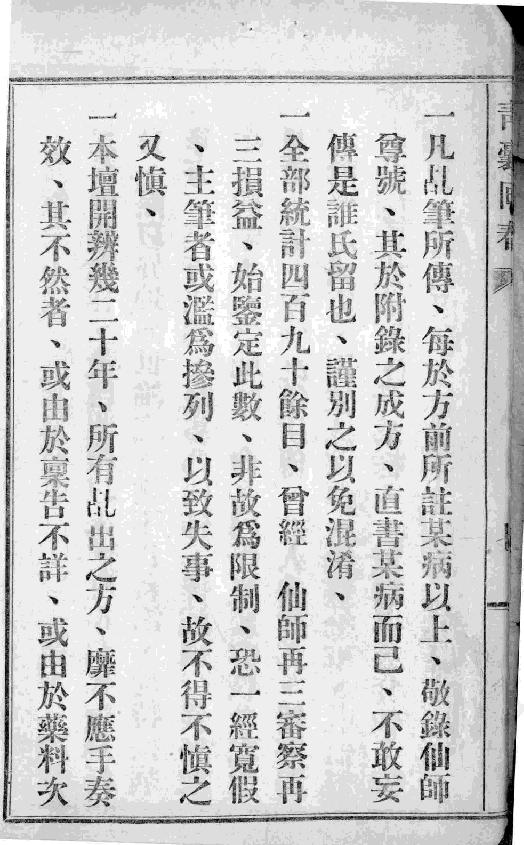 青囊回春
一凡乩筆所傳、每於方前所註某病以上、敬錄仙師
尊號、其於附錄之成方、直書某病而已、不敢妄
傳是誰氏留也、謹別之以免混淆、
一全部統計四百九十餘目、曾經　仙師再三審察再
三損益、始鑒定此數、非故為限制、恐一經寬假
、主筆者或濫為摻列、以致失事、故不得不慎之
又慎、
一本壇開辦幾二十年、所有乩出之方、靡不應手奏
效、其不然者、或由於稟告不詳、或由於藥料次